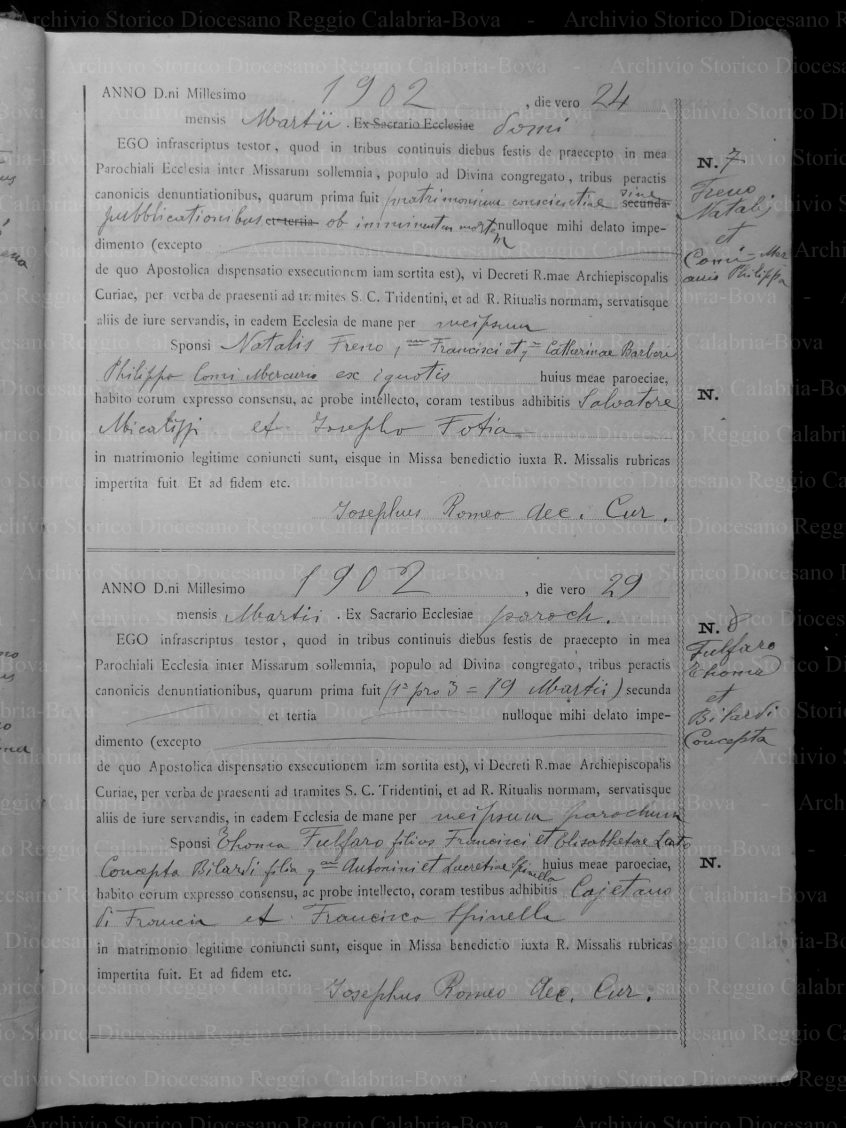 Archivio Storico Diocesano Reggio Calabria-Bova
ANNO D.ni Millesimo 1902, die vero 24
mensis Martii. Ex Sacrario Ecclesiae domi
EGO infrascriptus testor, quod in tribus continuis diebus festis de praecepto in mea
Parochiali Ecclesia inter Missarum sollemnia, populo ad Divina congregato, tribus peractis
canonicis denuntiationibus, quarum prima fuit matrimonium conscientiae sine secunda
pubblicationibus et tertia ob imminentem mortem nulloque mihi delato impe-
dimento (excepto
de quo Apostolica dispensatio exsecutionem iam sortita est), vi Decreti R.mae Archiepiscopalis
Curiae, per verba de praesenti ad tramites S. C. Tridentini, et ad R. Ritualis normam, servatisque
aliis de iure servandis, in eadem Ecclesia de mane per meipsum
Sponsi Natalis Freno, Francisci et Catharinae Barberi
Philippa Comi Mercurio ex ignotis huius meae paroeciae,
habito eorum expresso consensu, ac probe intellecto, coram testibus adhibitis Salvatore
Micalizzi et Josepho Fotia
in matrimonio legitime coniuncti sunt, eisque in Missa benedictio iuxta R. Missalis rubricas
impertita fuit. Et ad fidem etc.
Josephus Romeo dec. Cur.
N. 7
Freno
Natalis
et
Comi
Philippa
N.
ANNO D.ni Millesimo 1902, die vero 29
mensis Martii. Ex Sacrario Ecclesiae paroch.
EGO infrascriptus testor, quod in tribus continuis diebus festis de praecepto in mea
Parochiali Ecclesia inter Missarum sollemnia, populo ad Divina congregato, tribus peractis
canonicis denuntiationibus, quarum prima fuit (1ª pro 3 = 19 Martii) secunda
et tertia nulloque mihi delato impe-
dimento (excepto
de quo Apostolica dispensatio exsecutionem iam sortita est), vi Decreti R.mae Archiepiscopalis
Curiae, per verba de praesenti ad tramites S. C. Tridentini, et ad R. Ritualis normam, servatisque
aliis de iure servandis, in eadem Ecclesia de mane per meipsum parochum
Sponsi Thoma Fulfaro filius Francisci et Elisabhetae
Concepta Bilardi filia Antonini et Lucretiae Spinella huius meae paroeciae,
habito eorum expresso consensu, ac probe intellecto, coram testibus adhibitis Cajetano
di Francia et Francisco Spinella
in matrimonio legitime coniuncti sunt, eisque in Missa benedictio iuxta R. Missalis rubricas
impertita fuit. Et ad fidem etc.
Josephus Romeo dec. Cur.
N. 8
Fulfaro
Thoma
et
Bilardi
Concepta
N.